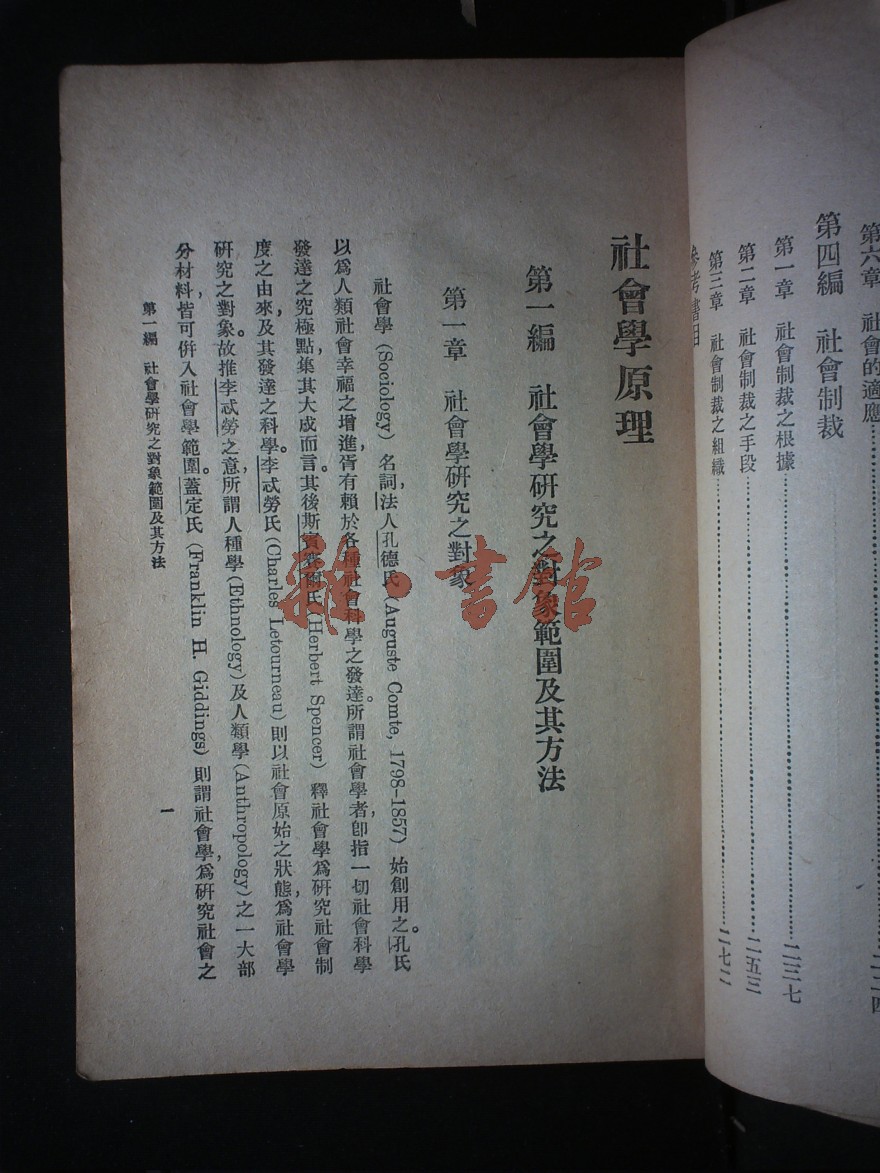 第六章　社會的適應
第四編　社會制裁
第一章　社會制裁之根據……二三七
第二章　社會制裁之手段……二五三
第三章　社會制裁之組織……二七二
參考書目
社會學原理
第一編　社會學研究之對象範圍及其方法
第一章　社會學研究之對象
社會學(Sociology)名詞，法人孔德氏(Auguste Comte, 1798-1857)始創用之。孔氏
以爲人類社會幸福之增進，胥有賴於各種社會科學之發達。所謂社會學者，卽指一切社會科學
發達之究極點，集其大成而言。其後斯賓賽爾氏(Herbert Spencer)釋社會學爲研究社會制
度之由來，及其發達之科學。李忒勞氏(Charles Letourneau)則以社會原始之狀態，爲社會學
研究之對象。故推李忒勞之意，所謂人種學(Ethnology)及人類學(Anthropology)之一大部
分材料，皆可併入社會學範圍。蓋定氏(Franklin H. Giddings)則謂社會學，爲研究社會之
第一編　社會學研究之對象範圍及其方法
一
雜·書館